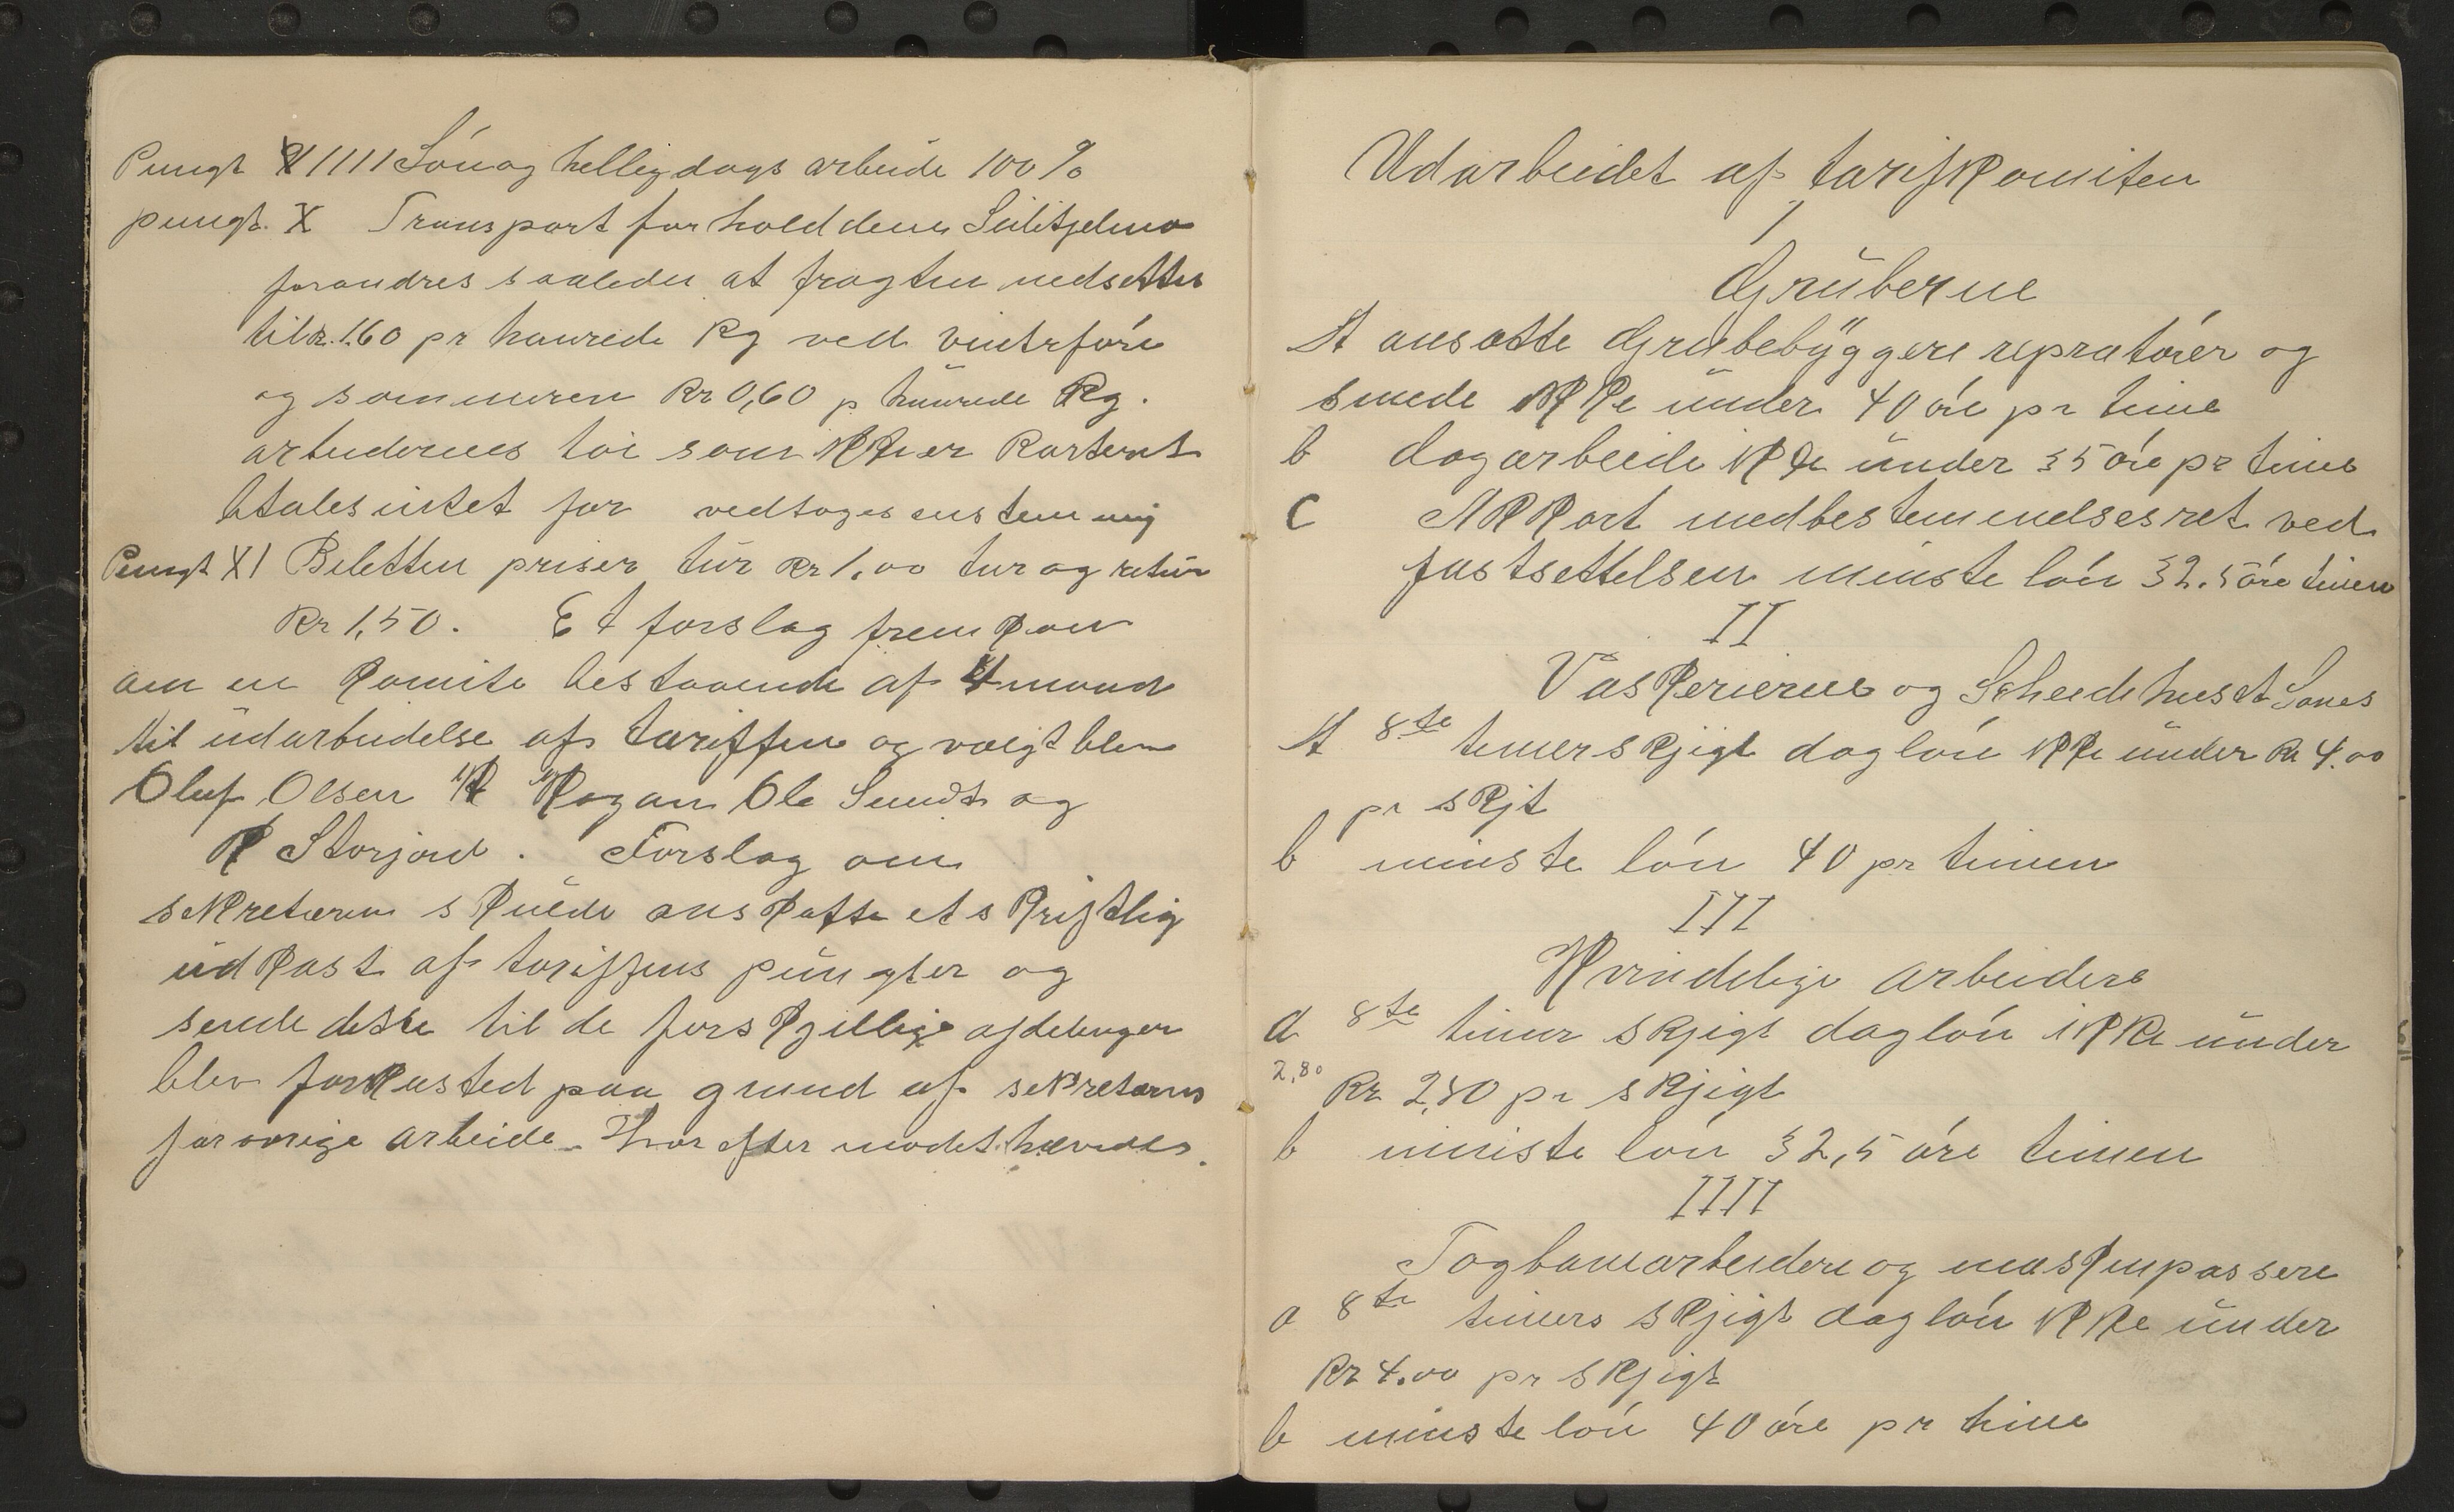 Pungt VIIII Sön og helligdags arbeide 100 %
pungt. X Transport forholddene Sulitjelma
forandres saaledes at fragten nedsettes
til kr. 1.60 pr hunrede Kg ved vinterföre
og sommeren Kr 0,60 p hunrede Kg.
arbeidernes töi som ikke er Kartent
btales intet for vedtoges enstemmig
Pungt XI Beletten priser tur Kr 1.00 tur og retur
Kr 1,50. Et forslag frem kom
om en Komite bestaaende af 4 mand
til udarbeidelse af tariffen og valgt blev
Oluf Olsen K Hogan Ole Sundt og
K Storjord. Forslag om
seKretæren sKulde ansKaffe et sKriftlig
udKast af tariffens pungter og
sende dette til de forsKjellige afdelinger
blev forKasted paa grund af seKretærens
forövrige arbeide Hvor efter mødet hævedes.
Udarbeidet af tarifKomiten
I
Gruberne
A ansatte Grubebyggere repratörer og
smede iKKe under 40 öre pr time
b dagarbeide iKKe under 35 öre pr time
C AKKort medbestemmelsesret ved
fastsettelsen minste lön 32.5 öre timen
II
VasKerierne og Scheidehuset Sones
A 8te timer sKjigt daglön iKKe under Kr 4.00
pr sKjt
b minste lön 40 pr timen
III
Kvindelige arbeidere
a 8te timer sKjigt daglön iKKe under
2,80
Kr 2,80 pr sKjigt
b minste lön 32,5 öre timen
IIII
Togbanearbeidere og masKinpassere
a 8te timers sKjigt daglön iKKe under
Kr 4.00 pr sKjigt
b minste lön 40 öre pr time